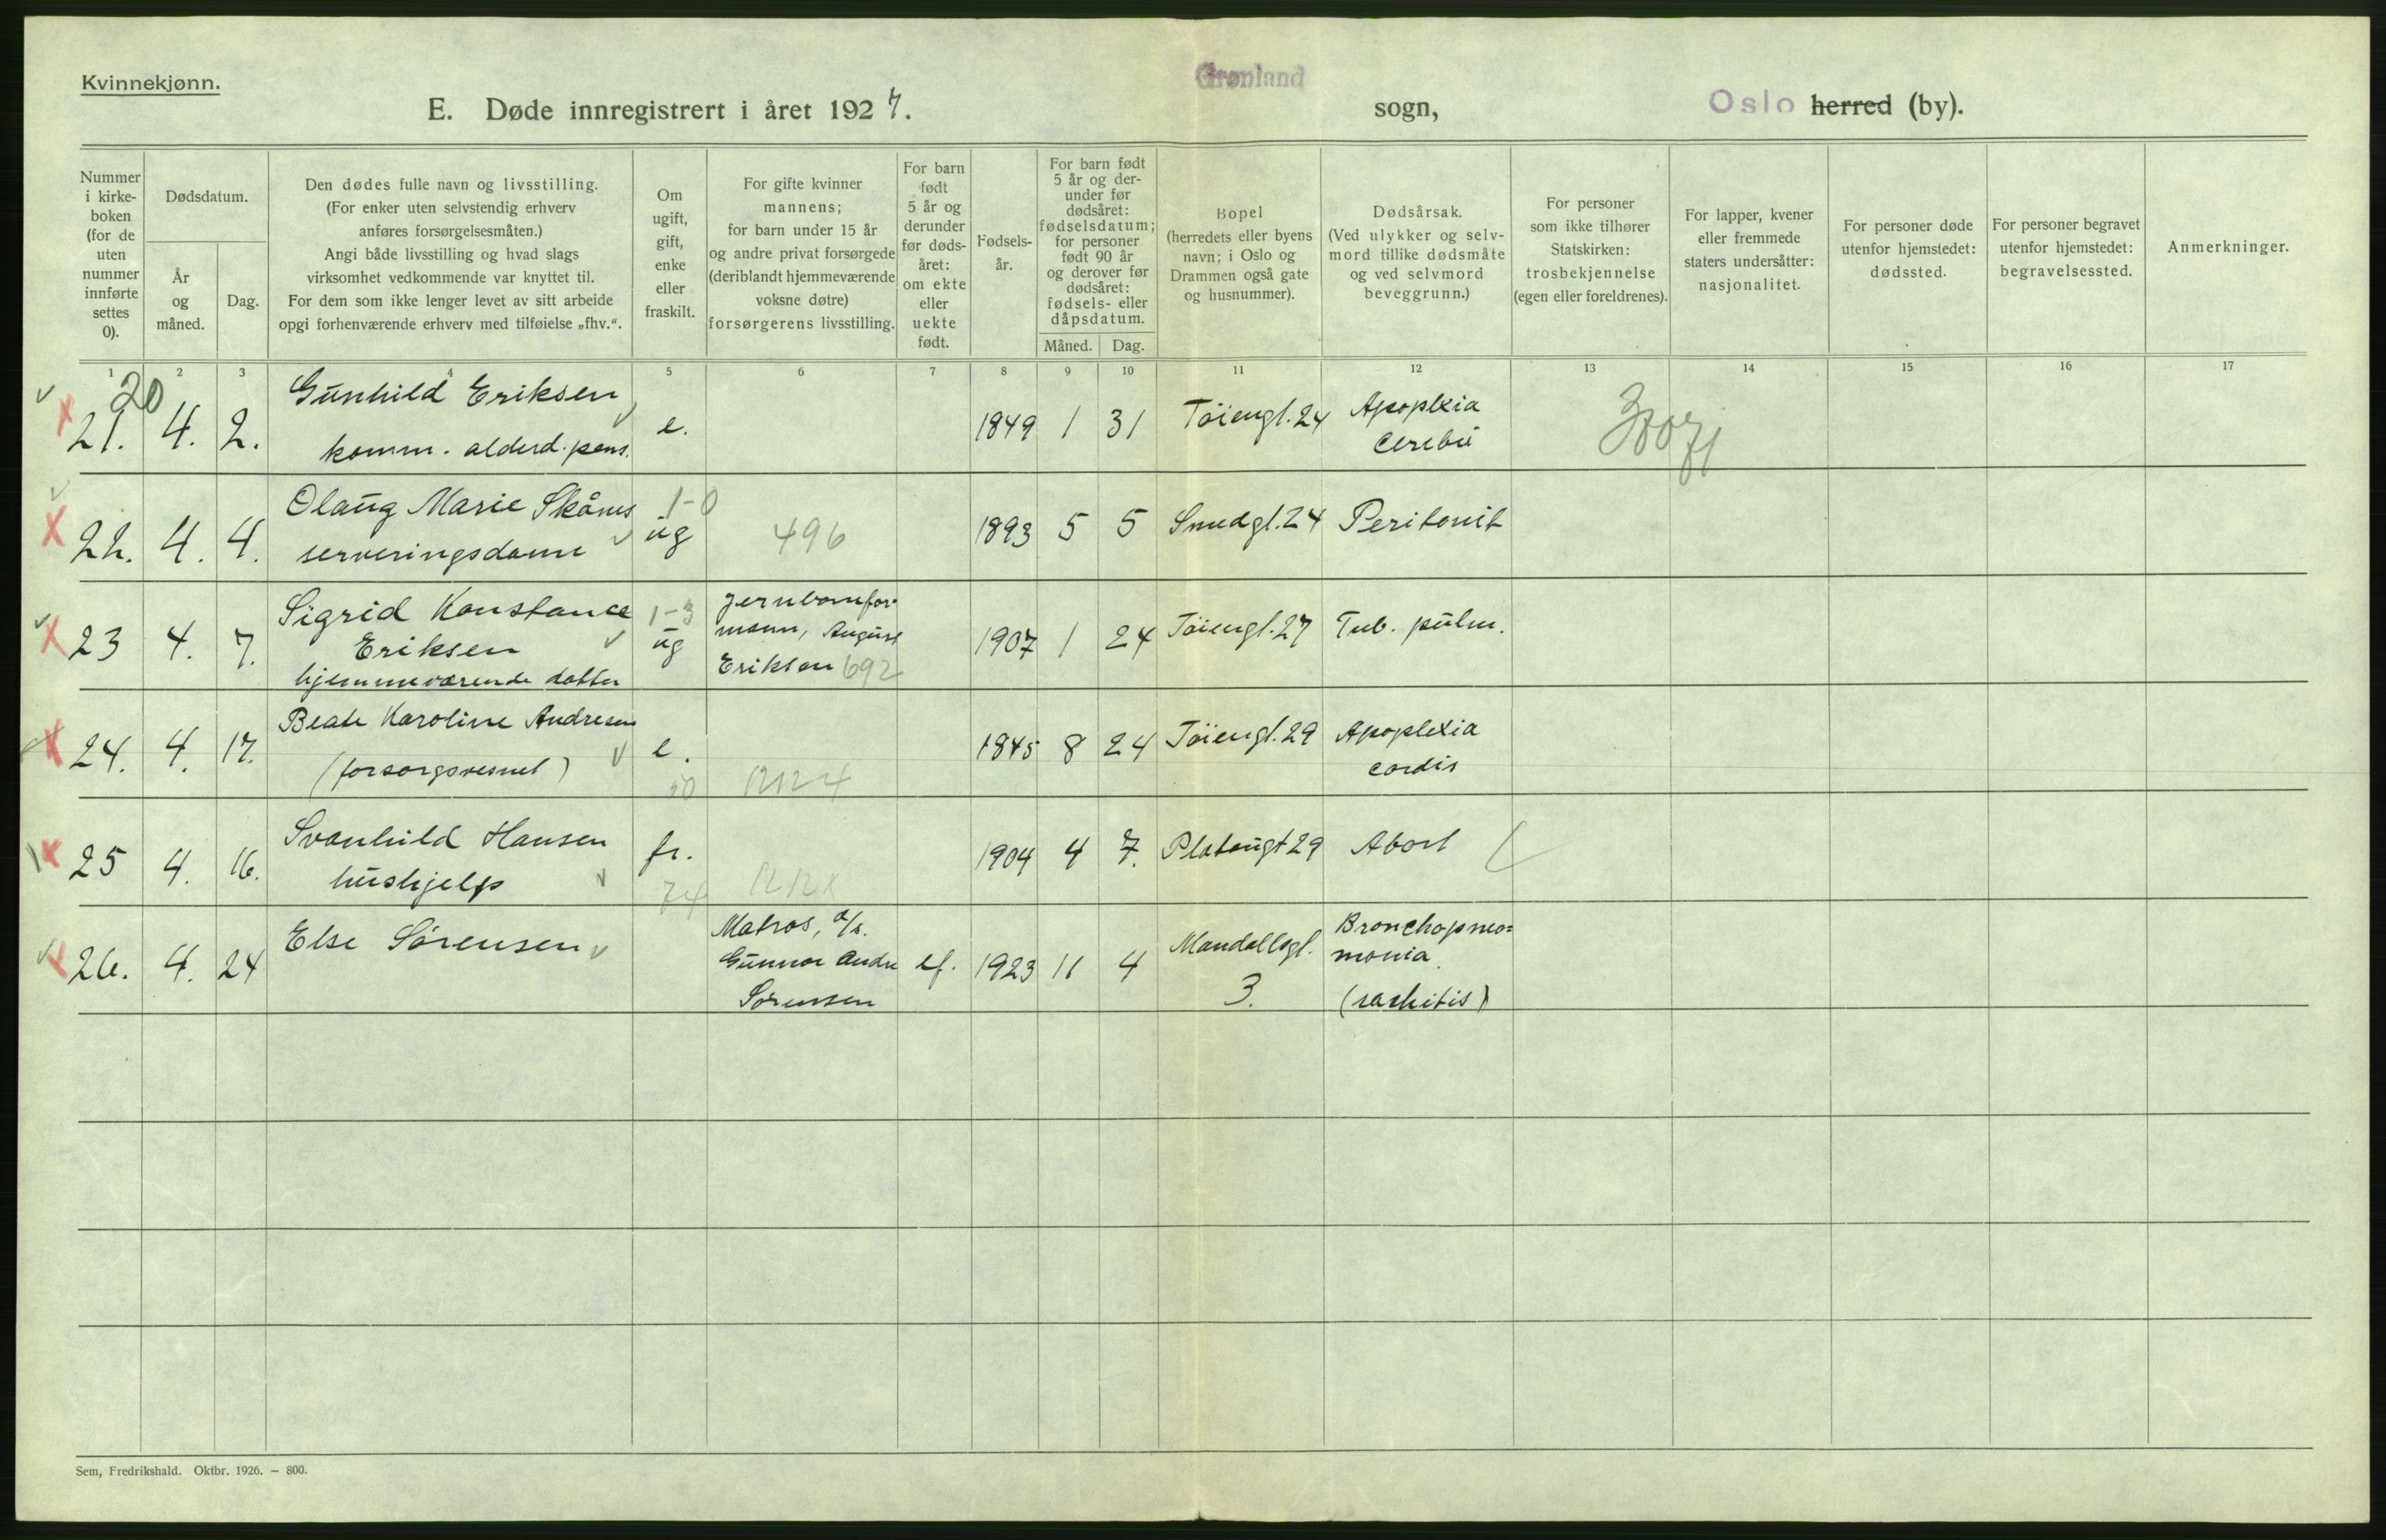 Kvinnekjønn.
E. Døde innregistrert i året 1927.
Grønland
sogn,
Oslo herred (by).
Nummer i kirke-boken (for de uten nummer innførte settes 0).
Dødsdatum.
År og måned.
Dag.
Den dødes fulle navn og livsstilling.
(For enker uten selvstendig erhverv
anføres forsørgelsesmåten.)
Angi både livsstilling og hvad slags
virksomhet vedkommende var knyttet til.
For dem som ikke lenger levet av sitt arbeide
opgi forhenværende erhverv med tilføielse „fhv.“.
Om ugift, gift, enke eller fraskilt.
For gifte kvinner
mannens;
for barn under 15 år
og andre privat forsørgede
(deriblandt hjemmeværende
voksne døtre)
forsørgerens livsstilling.
For barn født 5 år og derunder før døds-året: om ekte eller uekte født.
Fødsels-år.
For barn født
5 år og der-
under før
dødsåret:
fødselsdatum;
for personer
født 90 år
og derover før
dødsåret:
fødsels- eller
dåpsdatum.
Måned. Dag.
Bopel
(herredets eller byens
navn; i Oslo og
Drammen også gate
og husnummer).
Dødsårsak.
(Ved ulykker og selv-
mord tillike dødsmåte
og ved selvmord
beveggrunn.)
For personer
som ikke tilhører
Statskirken:
trosbekjennelse
(egen eller foreldrenes).
For lapper, kvener
eller fremmede
staters undersåtter:
nasjonalitet.
For personer døde
utenfor hjemstedet:
dødssted.
For personer begravet
utenfor hjemstedet:
begravelsessted.
Anmerkninger.
1 2 3 4 5 6 7 8 9 10 11 12 13 14 15 16 17
20
21. 4. 2. Gunhild Eriksen e. 1849 1 31 Töiengt.24 Apoplexia
komm. alderd. pens. cerebri
22. 4. 4. Olaug Marie Skånes 1-0 ug 496 1893 5 5 Smedgt.24 Peritonit
serveringsdame
23 4. 7. Sigrid Konstance 1-3 ug Jernbanefor-
Eriksen mann, August 1907 1 24 Töiengt.27 Tub. pulm.
hjemmeværende datter Eriksen 692
24. 4. 17. Beate Karoline Andresen e. 1845 8 24 Töiengt.29 Apoplexia
(forsorgsvesnet) cordis
25 4. 16. Svanhild Hansen fr. 1904 4 7. Platougt 29 Abort
hushjelp 74
26. 4. 24 Else Sörensen Matros, a/s. ef. 1923 11 4 Mandallsgt. Bronchopneo=
Gunnar Andr monia
Sörensen 3. (rachitis)
Sem, Fredrikshald. Oktbr. 1926. — 800.